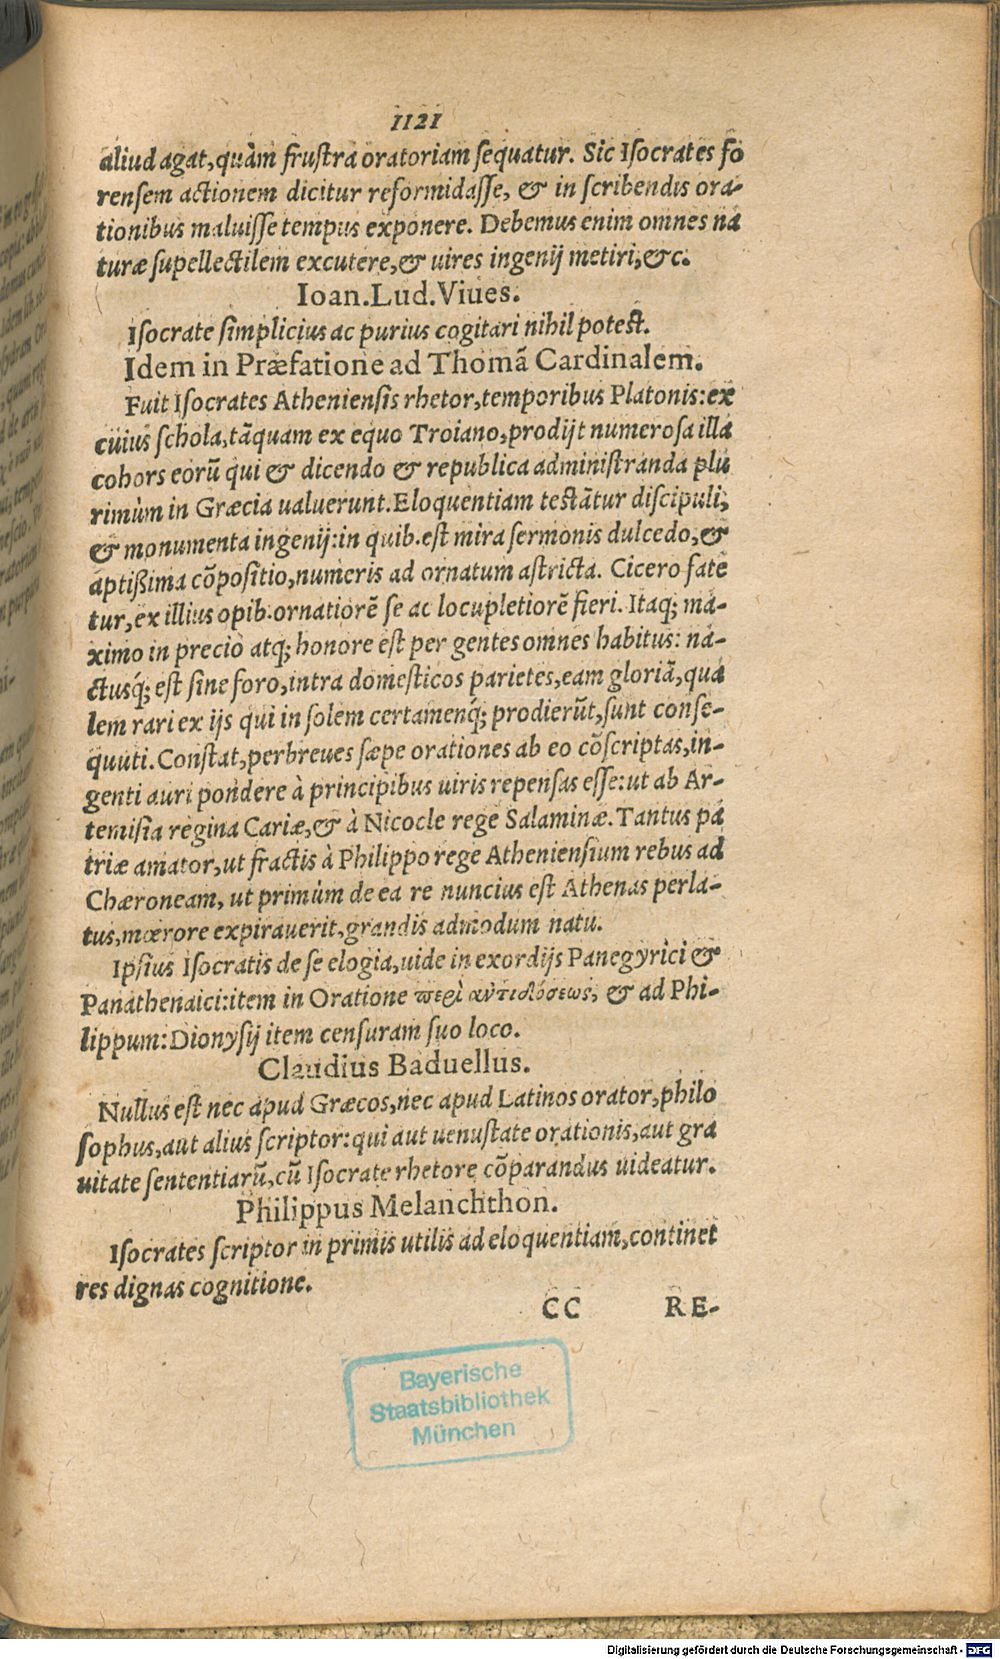 1121
aliud agat, quàm frustra oratoriam sequatur. Sic Isocrates fo
rensem actionem dicitur reformidasse, & in scribendis ora-
tionibus maluisse tempus exponere. Debemus enim omnes na
turæ supellectilem excutere, & uires ingenij metiri, &c.
Ioan. Lud. Viues.
Isocrate simplicius ac purius cogitari nihil potest.
Idem in Præfatione ad Thomã Cardinalem.
Fuit Isocrates Atheniensis rhetor, temporibus Platonis: ex
cuius schola, tãquam ex equo Troiano, prodijt numerosa illa
cohors eorũ qui & dicendo & republica administranda plu
rimùm in Græcia ualuerunt. Eloquentiam testãtur discipuli,
& monumenta ingenij: in quib. est mira sermonis dulcedo, &
aptißima cõpositio, numeris ad ornatum astricta. Cicero fate
tur, ex illius opib. ornatiorẽ se ac locupletiorẽ fieri. Itaq; ma-
ximo in precio atq; honore est per gentes omnes habitus: na-
ctusq́; est sine foro, intra domesticos parietes, eam gloriã, qua
lem rari ex ijs qui in solem certamenq́; prodierũt, sunt conse-
quuti. Constat, perbreues sæpe orationes ab eo cõscriptas, in-
genti auri pondere à principibus uiris repensas esse: ut ab Ar-
temisia regina Cariæ, & à Nicocle rege Salaminæ. Tantus pa
triæ amator, ut fractis à Philippo rege Atheniensium rebus ad
Chæroneam, ut primùm de ea re nuncius est Athenas perla-
tus, mœrore expirauerit, grandis admodum natu.
Ipsius Isocratis de se elogia, uide in exordijs Panegyrici &
Panathenaici: item in Oratione περὶ ἀντιδόσεως, & ad Phi-
lippum: Dionysij item censuram suo loco.
Claudius Baduellus.
Nullus est nec apud Græcos, nec apud Latinos orator, philo
sophus, aut alius scriptor: qui aut uenustate orationis, aut gra
uitate sententiarũ, cũ Isocrate rhetore cõparandus uideatur.
Philippus Melanchthon.
Isocrates scriptor in primis utilis ad eloquentiam, continet
res dignas cognitione.
CC RE-
Bayerische
Staatsbibliothek
München
Digitalisierung gefördert durch die Deutsche Forschungsgemeinschaft - DFG